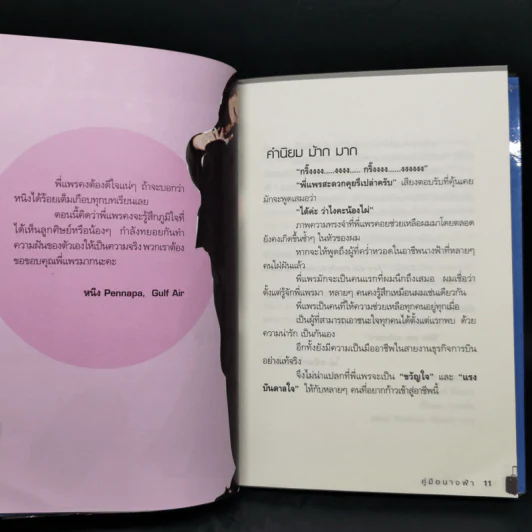 พี่แพรคงต้องดีใจแน่ๆ ถ้าจะบอกว่า
หนิงได้ร้อยเต็มเกือบทุกบทเรียนเลย
ตอนนี้คิดว่าพี่แพรคงจะรู้สึกภูมิใจที่
ได้เห็นลูกศิษย์หรือน้องๆ กำลังทยอยกันทำ
ความฝันของตัวเองให้เป็นความจริง พวกเราต้อง
ขอขอบคุณพี่แพรมากนะคะ
หนิง Pennapa, Gulf Air
คำนิยม ม้าก มาก
"กริ๊งงงง.....งงงง..... กริ๊งงงง......งงงงงง"
"พี่แพรสะดวกคุยรึเปล่าครับ" เสียงตอบรับที่คุ้นเคย
มักจะพูดเสมอว่า
"ได้ค่ะ ว่าไงคะน้องไผ่"
ภาพความทรงจำที่พี่แพรคอยช่วยเหลือผมมาโดยตลอด
ยังคงเกิดขึ้นซ้ำๆ ในหัวของผม
หากจะให้พูดถึงผู้ที่คร่ำหวอดในอาชีพนางฟ้าที่หลายๆ
คนใฝ่ฝันแล้ว
พี่แพรมักจะเป็นคนแรกที่ผมนึกถึงเสมอ ผมเชื่อว่า
ตั้งแต่รู้จักพี่แพรมา หลายๆ คนคงรู้สึกเหมือนผมเช่นเดียวกัน
พี่แพรเป็นคนที่ให้ความช่วยเหลือทุกคนอยู่ทุกเมื่อ
เป็นผู้ที่สามารถเอาชนะใจทุกคนได้ตั้งแต่แรกพบ ด้วย
ความน่ารัก เป็นกันเอง
อีกทั้งยังมีความเป็นมืออาชีพในสายงานธุรกิจการบิน
อย่างแท้จริง
จึงไม่น่าแปลกที่พี่แพรจะเป็น "ขวัญใจ" และ "แรง
บันดาลใจ" ให้กับหลายๆ คนที่อยากก้าวเข้าสู่อาชีพนี้
คู่มือนางฟ้า 11